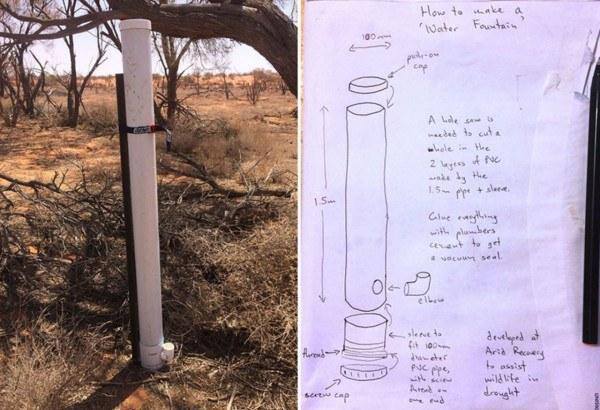 How to make a
'Water Fountain'
100mm
push-on
cap
A hole saw is
needed to cut a
hole in the
2 layers of PVC
made by the
1.5m pipe + sleeve.
1.5m
Glue everything
with plumbers
cement to get
a vacuum seal.
elbow
sleeve to
fit 100mm
diameter
PVC pipe,
with screw
thread on
one end
thread
screw cap
developed at
Arid Recovery
to assist
wildlife in
drought